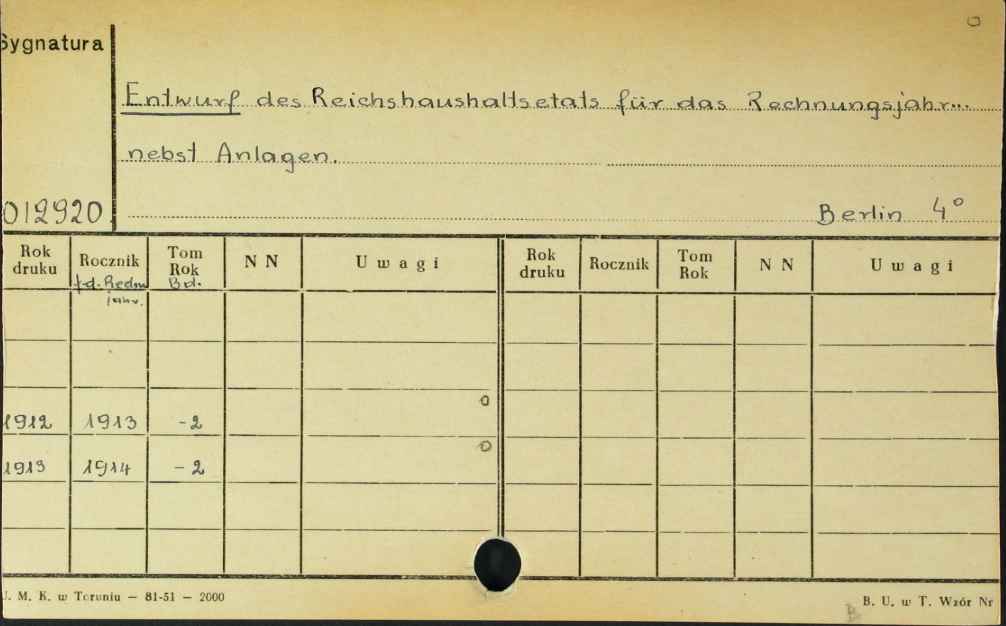 Sygnatura
Entwurf des Reichshaushaltsetats für das Rechnungsjahr...
nebst Anlagen.
012920
Berlin 4°
Rok druku Rocznik Tom Rok NN Uwagi Rok druku Rocznik Tom Rok NN Uwagi
Bd.
jahr.
1912 1913 -2
1913 1914 -2
U. M. K. w Toruniu — 81-51 — 2000
B. U. w T. Wzór Nr